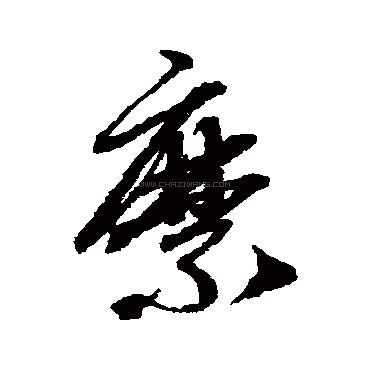 縻
WWW.CHAZIWANG.COM